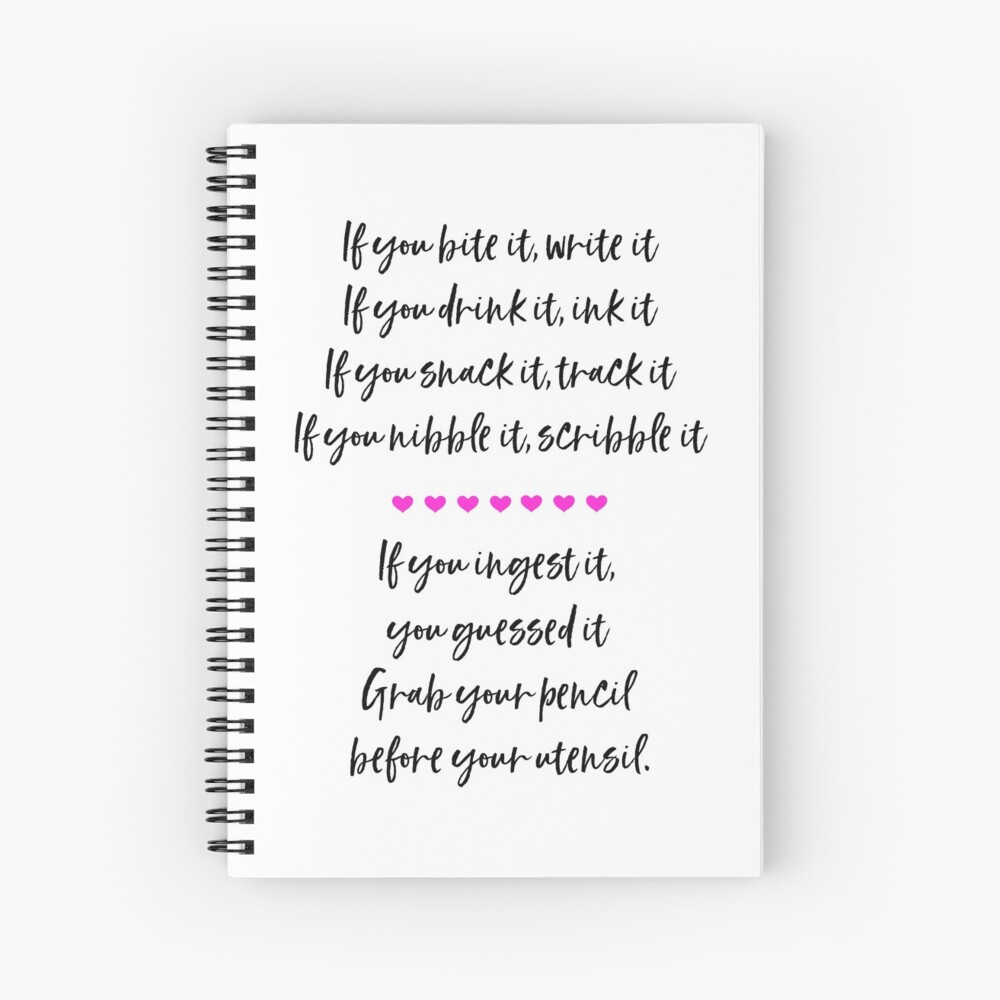 If you bite it, write it
If you drink it, ink it
If you snack it, track it
If you nibble it, scribble it
If you ingest it,
you guessed it
Grab your pencil
before your utensil.